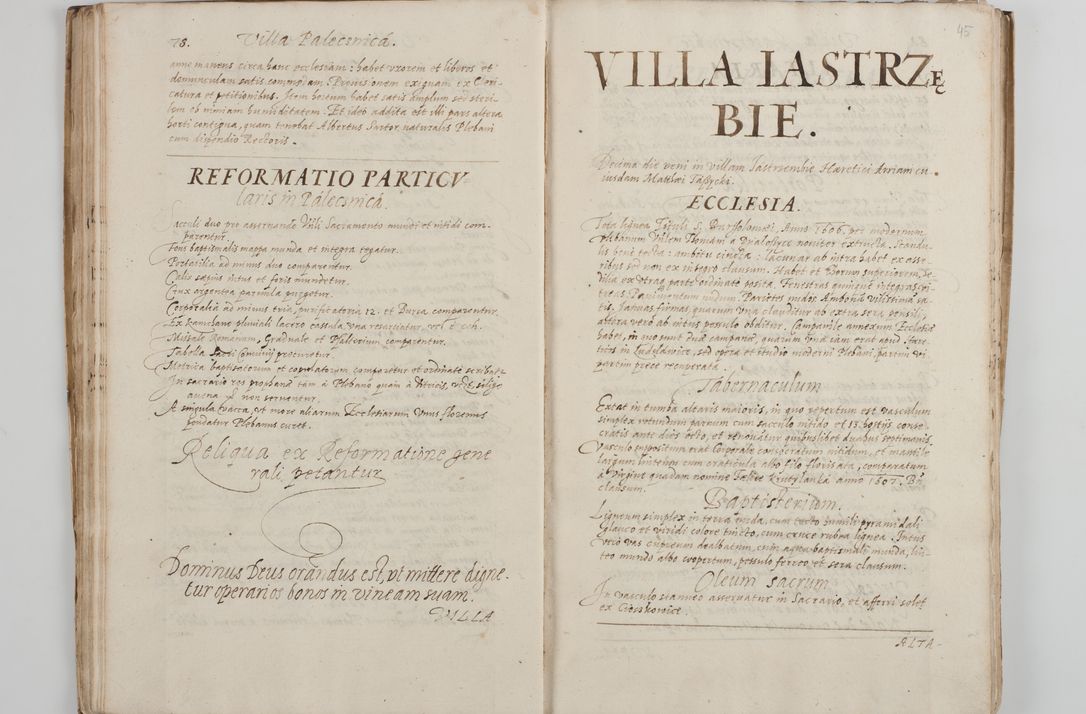 78. Villa Palecsnicá.
anne manens circa hanc ecclesiam: habet uxorem et liberos et
domunculam satis commodam. Provisionem exiguam ex Cleri-
catura et petitionibus. Item hortum habet satis amplum sed steri-
lem ob nimiam humiditatem. Et ideo addita est illi pars altera
horti contigua, quam tenebat Albertus Sartor naturalis Plebani
cum dispendio Rectoris.
REFORMATIO PARTICV
laris in Pálecsnicá.
Sacculi duo pro asservando Sacramento mundi et nitidi com-
parentur.
Fons baptismalis mappa munda et integra tegatur.
Portatilia ad minus duo comparentur.
Calix sæpius intus et foris mundetur.
Crux argentea parvula purgetur.
Corporalia ad minus tria, purificatoria 12. et Bursa comparentur.
Ex kamchano pluviali lacero casula una resarciatur,
Missale Romanum, Graduale et Psalterium comparentur.
Tabella procuretur.
Metrica baptisatorum et copulatorum comparetur et ordinate scribatur
In sacrario res prophanæ tam à Plebano quam à
avena non serventur.
A singula vacca, ut more aliarum Ecclesiarum unus florenus
pendatur Plebanus curet.
Reliqua ex Reformatione gene
rali petantur
Dominus Deus orándus est, vt mittere digne-
tur operarios bonos in vineam suam.
VILLA
45
VILLA IASTRZĘ
BIE.
Decima die veni in villam Iastrzembie Hæretici Arriani cu
iusdam Matthæi Tászycki.
ECCLESIA.
Tota lignea Tituli S. Bartholomæi, Anno 1606. per modernum
Plebanum noviter extructa. Scandu-
lis bene tecta: ambitu cincta: lacunar ab intra habet ex asse-
ribus sed non ex integro clausum. Habet et Chorum superiorem, Se-
dilia ex utraque parte ordinate posita. Fenestras quinque integras vi-
treas. Pavimentum nudum. Parietes nudos. Ambona vilissima sa-
tis. Ianuas firmas quarum una clauditur ab extra sera pensili,
altera vero ab intus pessulo obditur. Campanile annexum Ecclesiæ
habet, in quo sunt duæ campanæ, quarum una iam erat apud Hære-
ticos in sed opera et studio moderni Plebani partim vi
partim prece recuperata.
Tabernaculum
Extat in tumba altaris maioris, in quo repertum est vasculum
simplex rotundum parvum cum sacculo nitido et 13. hostijs conse-
cratis ante dies octo, et renovatur quibuslibet duabus septimanis.
Vasculo suppositum erat Corporale consecratum nitidum, et mantile
largum linteum cum craticula albo filo florisata, comparatum
à virgine quadam nomine anno 1607. Bn̄
clausum.
Baptisterium.
Ligneum simplex in terra cum tecto humili pyramidali
glauco et viridi colore tincto, cum cruce rubra lignea. Intus
vero vas cupreum dealbatum, cum aqua baptismali munda, lin-
teo mundo albo coopertum, pessulo ferreo, et sera clausum.
Oleum sacrum
In vasculo stanneo asservatur in Sacrario, et afferri solet
ex
ALTA-